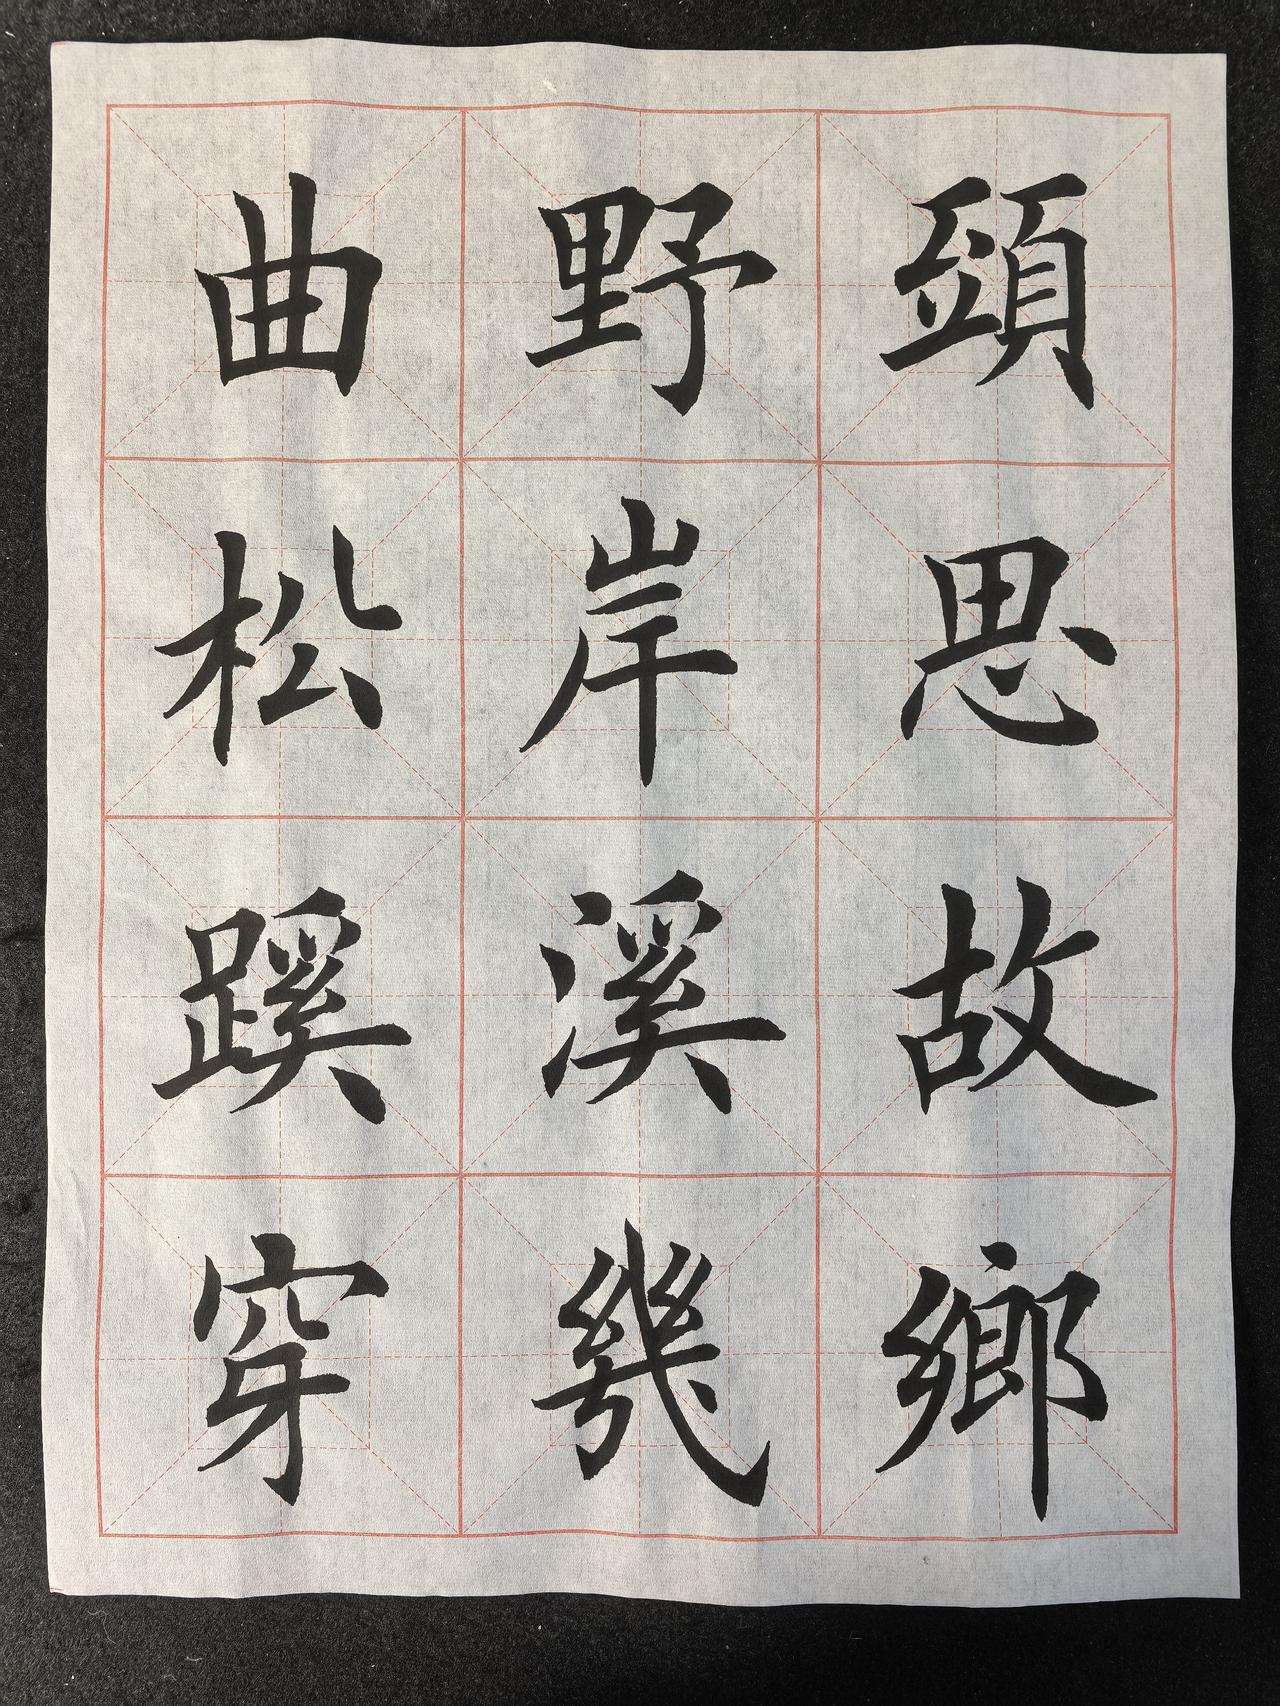 頭思故鄉
野岸溪幾
曲松蹊穿